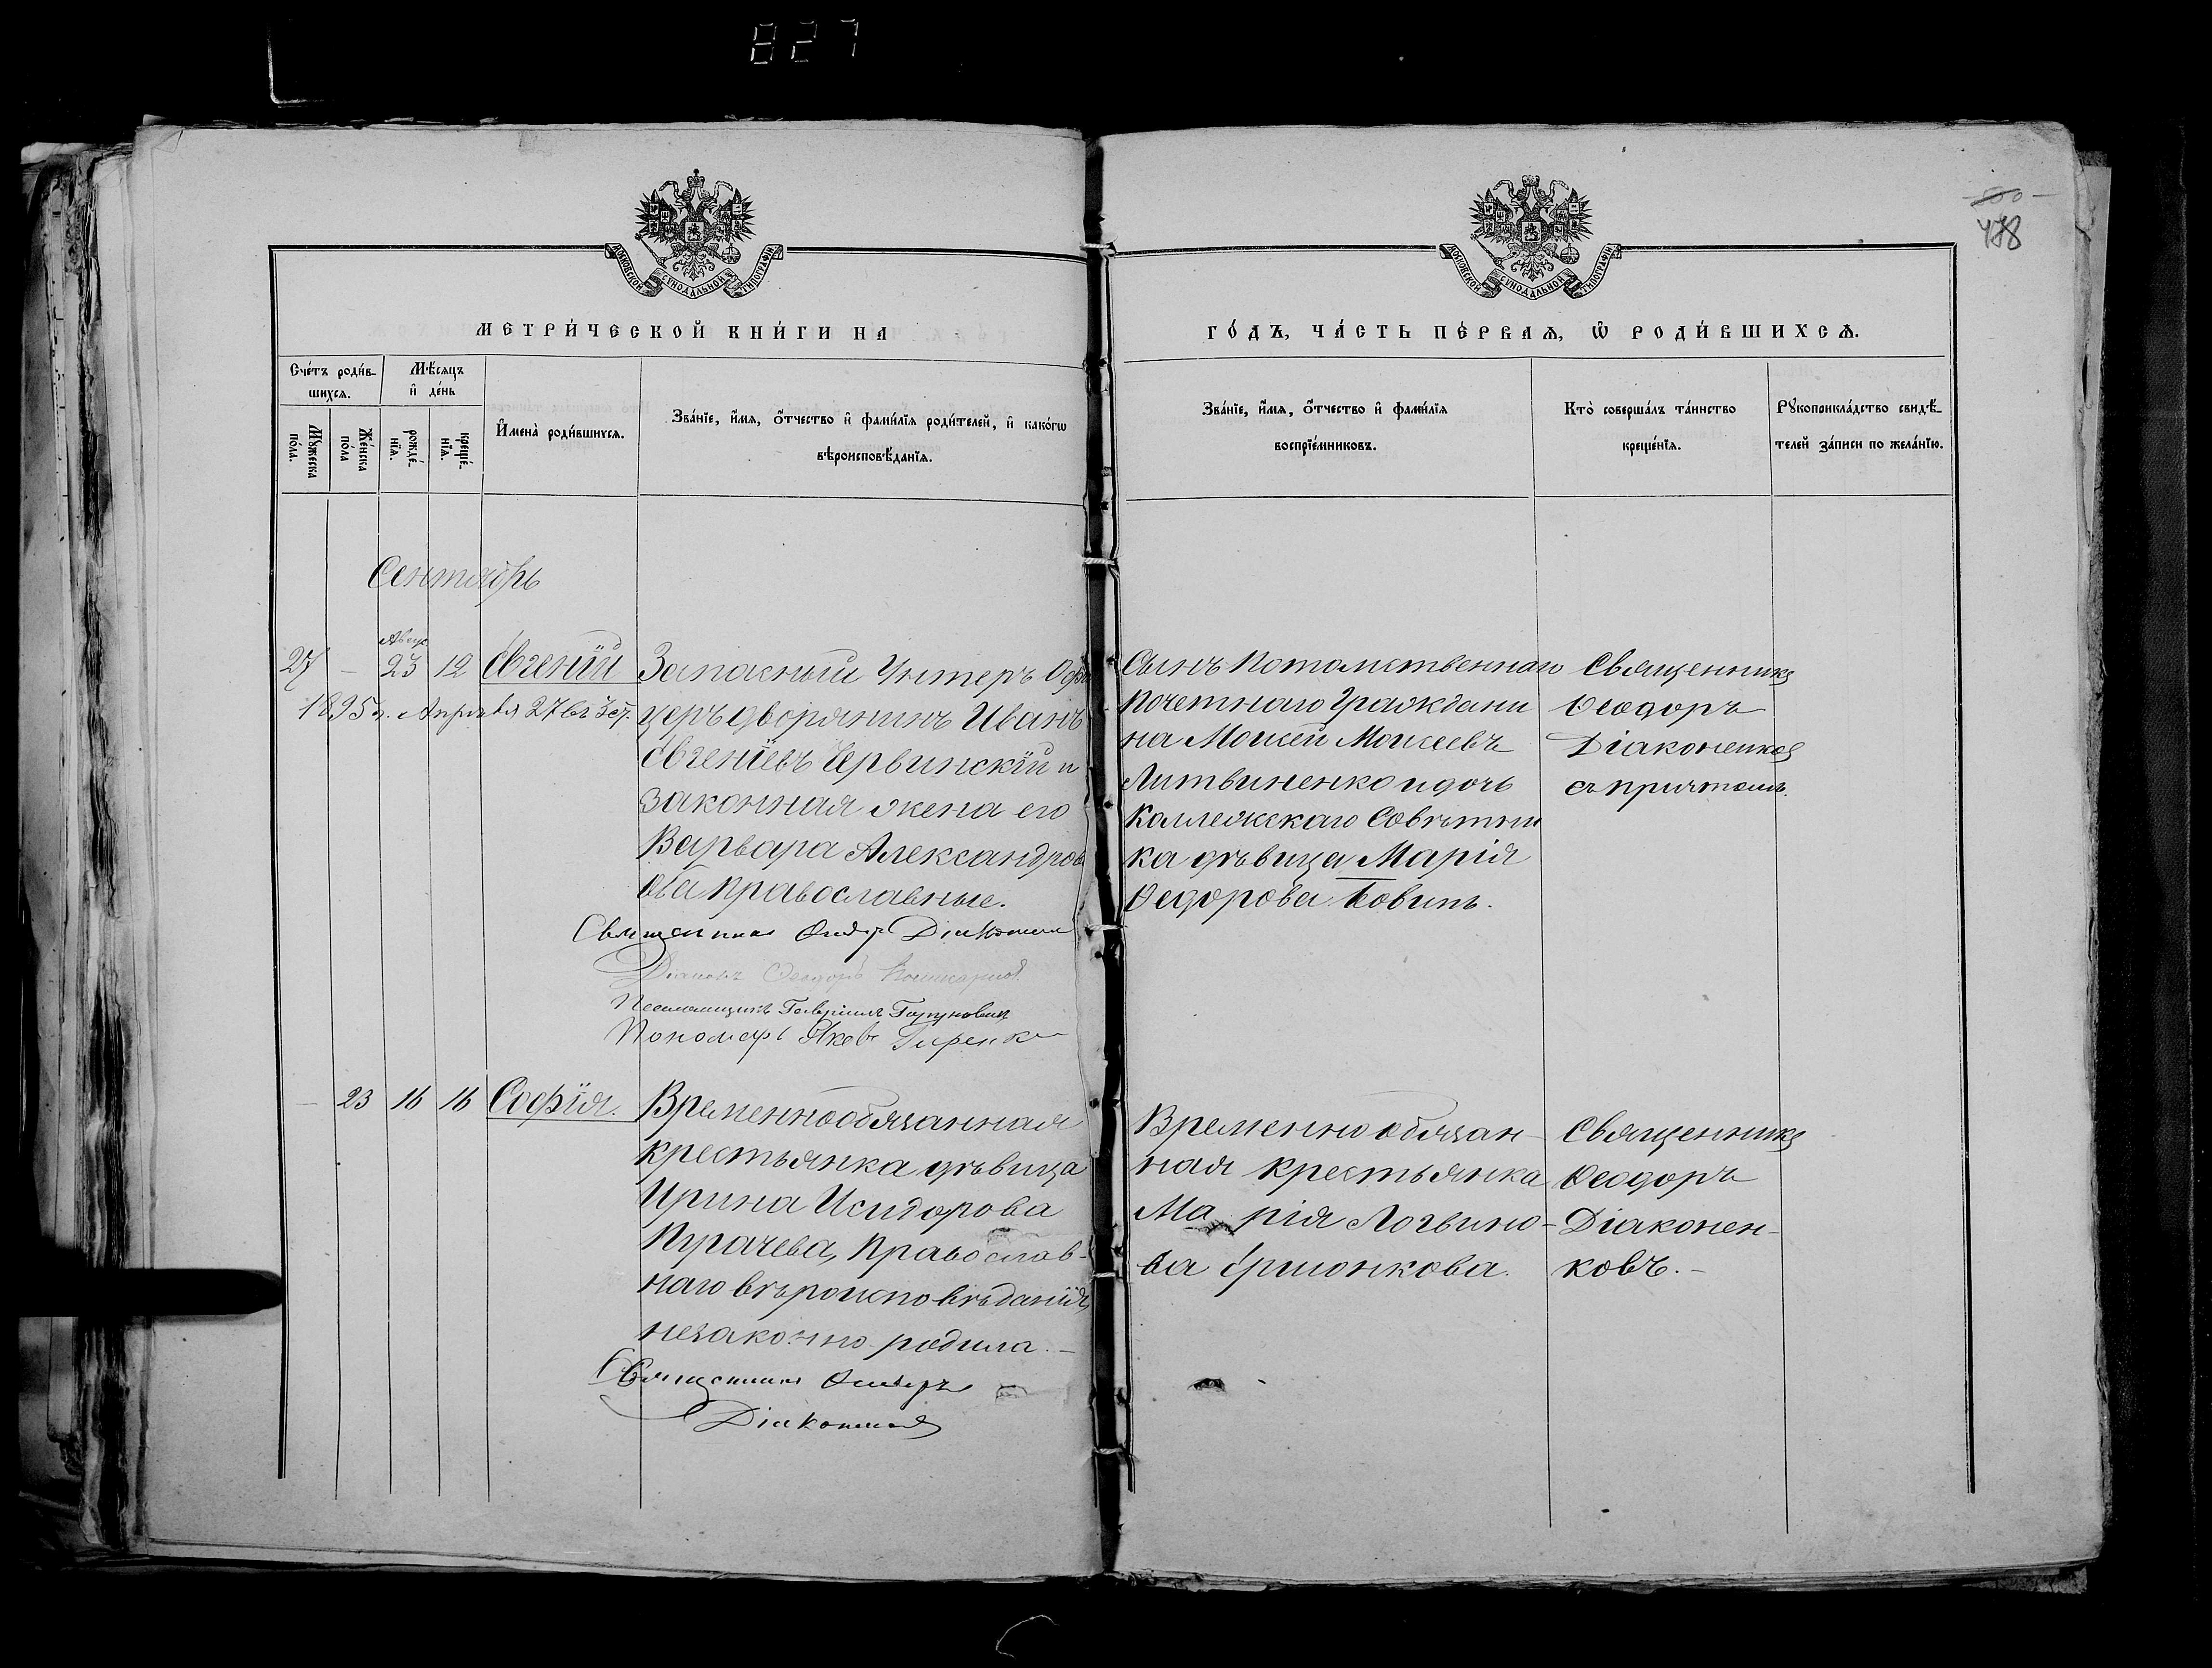 827
488
МОСКОВСКОЙ СУНОДАЛЬНОЙ ТИПОГРАФІИ
МОСКОВСКОЙ СУНОДАЛЬНОЙ ТИПОГРАФІИ
МЕТРИ́ЧЕСКОЙ КНИ́ГИ НА
ГО́ДЪ, ЧА́СТЬ ПЕ́РВАѦ, Ѿ РОДИ́ВШИХСѦ.
Сче́тъ роди́в-
шихсѧ.
Мѣ́сѧцъ
и҆ де́нь
Мꙋ́жеска
по́ла.
Же́нска
по́ла
рожде́-
нїѧ.
креще́-
нїѧ.
И҆мена̀ роди́вшихсѧ.
Зва́нїе, и҆́мѧ, ѻ҆́тчество и҆ фами́лїѧ роди́телей, и҆ како́гѡ
вѣроисповѣ́данїѧ.
Зва́нїе, и҆́мѧ, ѻ҆́тчество и҆ фами́лїѧ
воспрїе́мниковъ.
Кто̀ соверша́лъ та́инство
креще́нїѧ.
Рꙋкоприкла́дство свидѣ́-
телей за́писи по жела́нїю.
Сентябрь
Авгус
27 - 23 12 Евгеній
1895 г. Апрѣля 27
Запасный Унтеръ Офи
церъ дворянинъ Иванъ
Евгеніевъ Червинскій и
законная жена его
Варвара Александров
оба православные.
Священникъ Феодоръ Діаконенковъ
Діаконъ Феодоръ
Псаломщикъ Гавріилъ
Пономарь Яковъ
Сынъ Потомственнаго
Почетнаго Граждани
на Моисей Моисеевъ
Литвиненко и дочь
Коллежскаго Совѣтни
ка дѣвица Марія
Федорова
Священникъ
Феодоръ
Діаконенковъ
съ причтомъ.
- 23 16 16 Софія.
Временнообязанная
крестьянка дѣвица
Ирина Исидорова
Пугачева, Православ-
наго вѣроисповѣданія,
незаконно родила.-
Священникъ Феодоръ
Діаконенковъ
Временно обязан-
ная крестьянка
Марія Логвино-
ва
Священникъ
Феодоръ
Діаконен-
ковъ.-